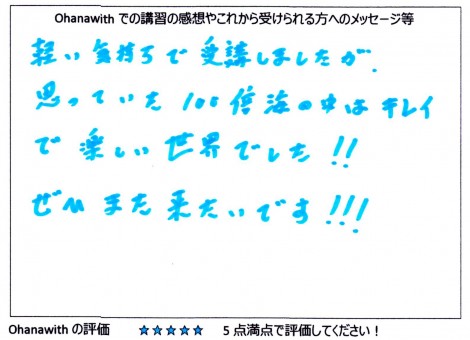 Ohanawith での講習の感想やこれから受けられる方へのメッセージ等
軽い気持ちで受講しましたが、
思っていた100倍海の中はキレイ
で楽しい世界でした!!
ぜひまた来たいです!!!
Ohanawith の評価 ★★★★★ 5 点満点で評価してください！